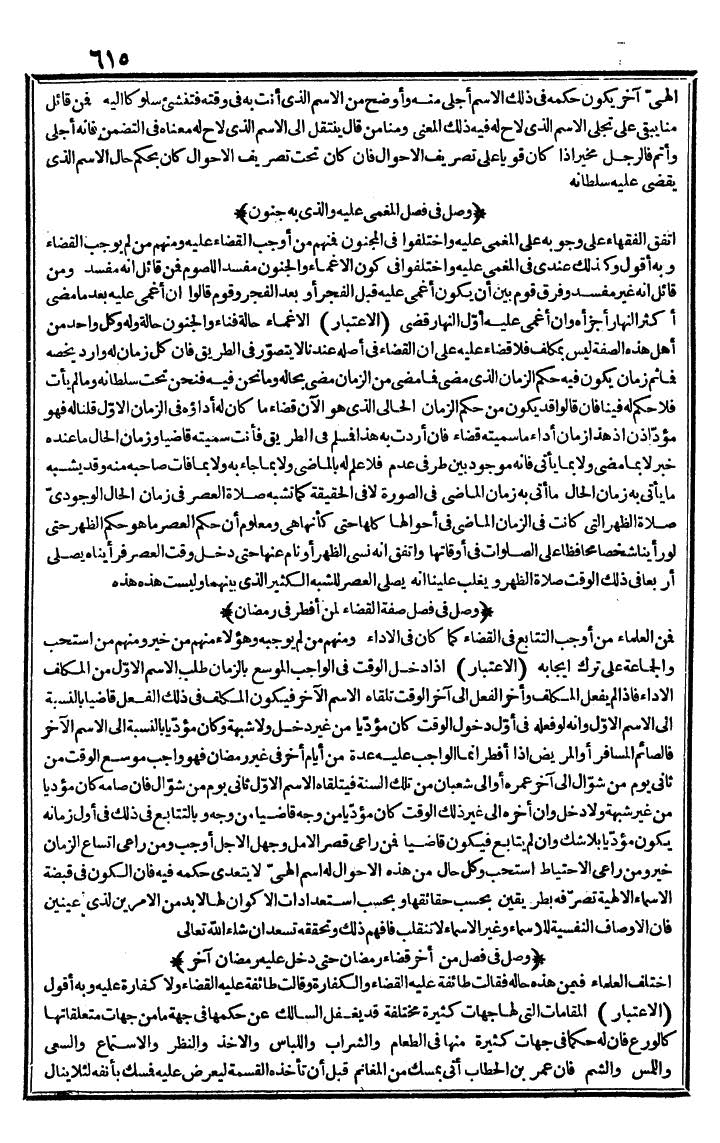 ٦١٥
الهىّ آخر يكون حكمه فى ذلك الاسم أجلى منه وأوضح من الاسم الذى أنت به فى وقته فتنشئ سلوكا اليه فمن قائل
منا يبقى على تجلى الاسم الذى لاح له فيه ذلك المعنى ومنا من قال ينتقل الى الاسم الذى لاح له معناه فى التضمن فانه أجلى
وأتم فالرجل مخير اذا كان قويا على تصريف الاحوال فان كان تحت تصريف الاحوال كان بحكم حال الاسم الذى
يقضى عليه سلطانه
﴿وصل فى فصل المغمى عليه والذى به جنون﴾
اتفق الفقهاء على وجوبه على المغمى عليه واختلفوا فى المجنون فمنهم من أوجب القضاء عليه ومنهم من لم يوجب القضاء
وبه أقول وكذلك عندى فى المغمى عليه واختلفوا فى كون الاغماء والجنون مفسدا للصوم فمن قائل انه مفسد ومن
قائل انه غير مفسد وفرق قوم بين أن يكون أغمى عليه قبل الفجر أو بعد الفجر وقوم قالوا ان أغمى عليه بعد ما مضى
أكثر النهار أجزأه وان أغمى عليه أوّل النهار قضى (الاعتبار) الاغماء حالة فناء والجنون حالة وله وكل واحد من
أهل هذه الصفة ليس بمكلف فلا قضاء عليه على ان القضاء فى أصله عندنا لا يتصوّر فى الطريق فان كل زمان له وارد يخصه
فما ثم زمان يكون فيه حكم الزمان الذى مضى فما مضى من الزمان مضى بحاله وما نحن فيه فنحن تحت سلطانه وما لم يأت
فلا حكم له فينا فان قالوا قد يكون من حكم الزمان الحالى الذى هو الآن قضاء ما كان له أداؤه فى الزمان الاوّل قلنا له فهو
مؤدّ اذن اذ هذا زمان أداء ما سميته قضاء فان أردت به هذا فسلم فى الطريق فأنت سميته قاضيا وزمان الحال ما عنده
خبر لا بما مضى ولا بما يأتى فانه موجود بين طرفى عدم فلا علم له بالماضى ولا بما جاء به ولا بما فات صاحبه منه وقد يشبه
ما يأتى به زمان الحال ما أتى به زمان الماضى فى الصورة لا فى الحقيقة كما تشبه صلاة العصر فى زمان الحال الوجودىّ
صلاة الظهر التى كانت فى الزمان الماضى فى أحوالها كلها حتى كأنها هى ومعلوم أن حكم العصر ما هو حكم الظهر حتى
لو رأينا شخصا محافظا على الصلوات فى أوقاتها واتفق انه نسى الظهر أو نام عنها حتى دخل وقت العصر فرأيناه يصلى
أربعا فى ذلك الوقت صلاة الظهر ويغلب علينا انه يصلى العصر للشبه الكثير الذى بينهما وليست هذه هذه
﴿وصل فى فصل صفة القضاء لمن أفطر فى رمضان﴾
فمن العلماء من أوجب التتابع فى القضاء كما كان فى الاداء ومنهم من لم يوجبه وهؤلاء منهم من خير ومنهم من استحب
والجماعة على ترك ايجابه (الاعتبار) اذا دخل الوقت فى الواجب الموسع بالزمان طلب الاسم الاوّل من المكلف
الاداء فاذا لم يفعل المكلف وأخر الفعل الى آخر الوقت تلقاه الاسم الآخر فيكون المكلف فى ذلك الفعل قاضيا بالنسبة
الى الاسم الاوّل وانه لو فعله فى أوّل دخول الوقت كان مؤدّيا من غير دخل ولا شبهة وكان مؤدّيا بالنسبة الى الاسم الآخر
فالصائم المسافر أو المريض اذا أفطر انما الواجب عليه عدة من أيام أخر فى غير رمضان فهو واجب موسع الوقت من
ثانى يوم من شوّال الى آخر عمره أو الى شعبان من تلك السنة فيتلقاه الاسم الاوّل ثانى يوم من شوّال فان صامه كان مؤديا
من غير شبهة ولا دخل وان أخره الى غير ذلك الوقت كان مؤدّيا من وجه قاضيا من وجه وبالتتابع فى ذلك فى أول زمانه
يكون مؤدّيا بلا شك وان لم يتابع فيكون قاضيا فمن راعى قصر الامل وجهل الاجل أوجب ومن راعى اتساع الزمان
خير ومن راعى الاحتياط استحب وكل حال من هذه الاحوال له اسم الهىّ لا يتعدى حكمه فيه فان الكون فى قبضة
الاسماء الالهية تصرّفه بطريقين بحسب حقائقها وبحسب استعدادات الاكوان لها لا بد من الامرين لذى عينين
فان الاوصاف النفسية للاسماء وغير الاسماء لا تنقلب فافهم ذلك وتحققه تسعد ان شاء اللّه تعالى
﴿وصل فى فصل من أخر قضاء رمضان حتى دخل عليه رمضان آخر﴾
اختلف العلماء فيمن هذه حاله فقالت طائفة عليه القضاء والكفارة وقالت طائفة عليه القضاء ولا كفارة عليه وبه أقول
(الاعتبار) المقامات التى لها جهات كثيرة مختلفة قد يغفل السالك عن حكمها فى جهة ما من جهات متعلقاتها
كالورع فان له حكما فى جهات كثيرة منها فى الطعام والشراب واللباس والاخذ والنظر والاستماع والسعى
واللمس والشم فان عمر بن الخطاب أتى بمسك من المغانم قبل أن تأخذه القسمة ليعرض عليه فمسك بأنفه لئلا ينال